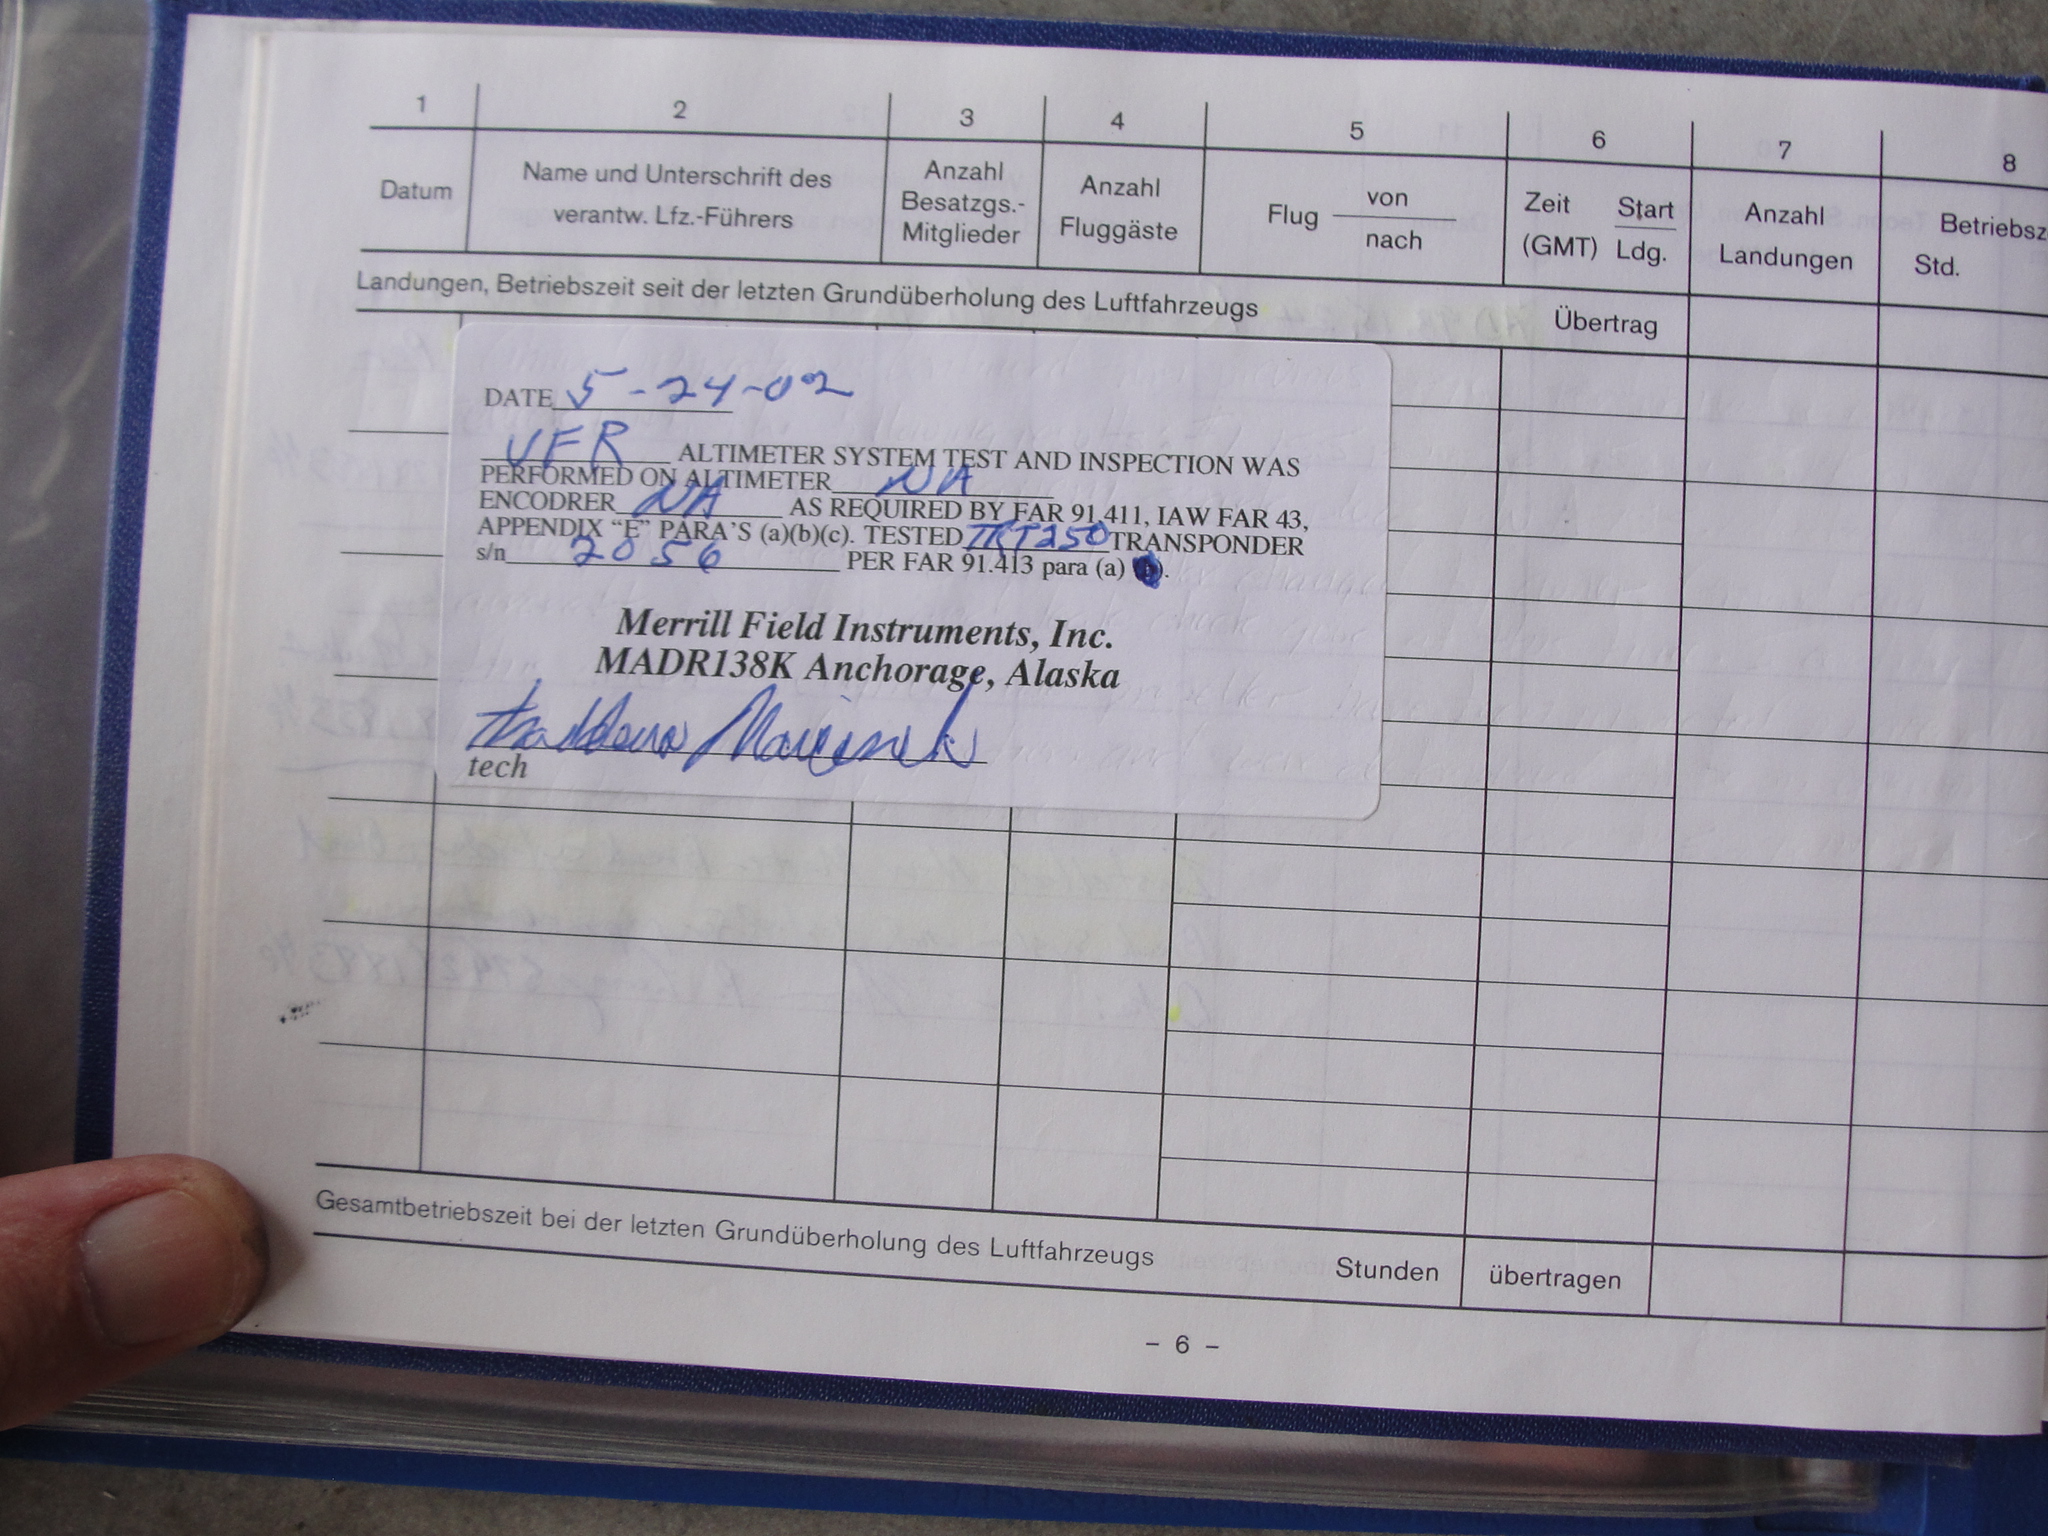 1 2 3 4 5 6 7 8
Datum
Name und Unterschrift des
verantw. Lfz.-Führers
Anzahl
Besatzgs.-
Mitglieder
Anzahl
Fluggäste
Flug von
nach
Zeit Start
(GMT) Ldg.
Anzahl
Landungen
Betriebsz
Std.
Landungen, Betriebszeit seit der letzten Grundüberholung des Luftfahrzeugs Übertrag
DATE 5-24-02
VFR ALTIMETER SYSTEM TEST AND INSPECTION WAS
PERFORMED ON ALTIMETER NA
ENCODRER NA AS REQUIRED BY FAR 91.411, IAW FAR 43,
APPENDIX “E” PARA’S (a)(b)(c). TESTED TRT250 TRANSPONDER
s/n 2056 PER FAR 91.413 para (a) ( ).
Merrill Field Instruments, Inc.
MADR138K Anchorage, Alaska
tech
Gesamtbetriebszeit bei der letzten Grundüberholung des Luftfahrzeugs Stunden übertragen
– 6 –